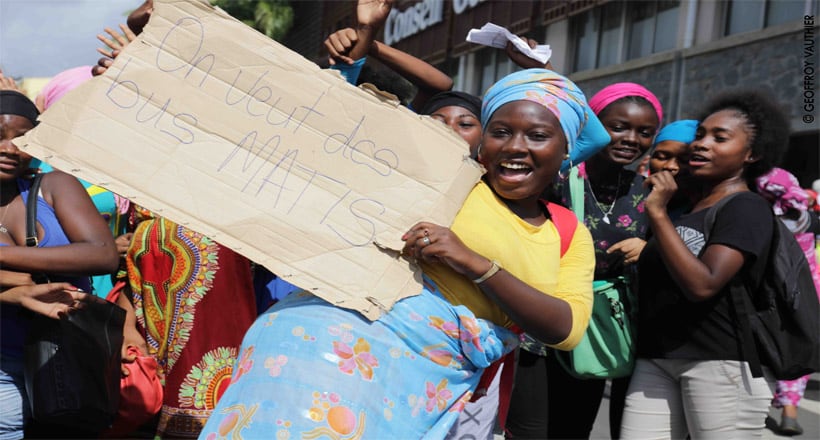 On veut des
bus MATIS
Conseil
© GEOFFROY VAUTHIER